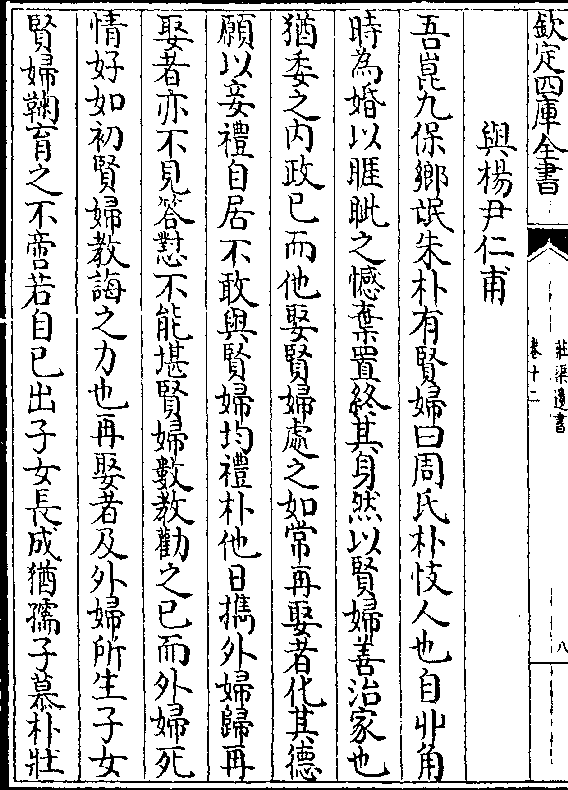 欽定四庫全書
莊渠遺書
卷十二
八
與楊尹仁甫
吾崑九保鄉氓朱朴有賢婦曰周氏朴忮人也自丱角
時為婚以睚眦之憾棄置終其身然以賢婦善治家也
猶委之内政已而他娶賢婦處之如常再娶者化其德
願以妾禮自居不敢與賢婦均禮朴他日擕外婦歸再
娶者亦不見答懟不能堪賢婦數教勸之已而外婦死
情好如初賢婦教誨之力也再娶者及外婦所生子女
賢婦鞠育之不啻若自已出子女長成猶孺子慕朴壯